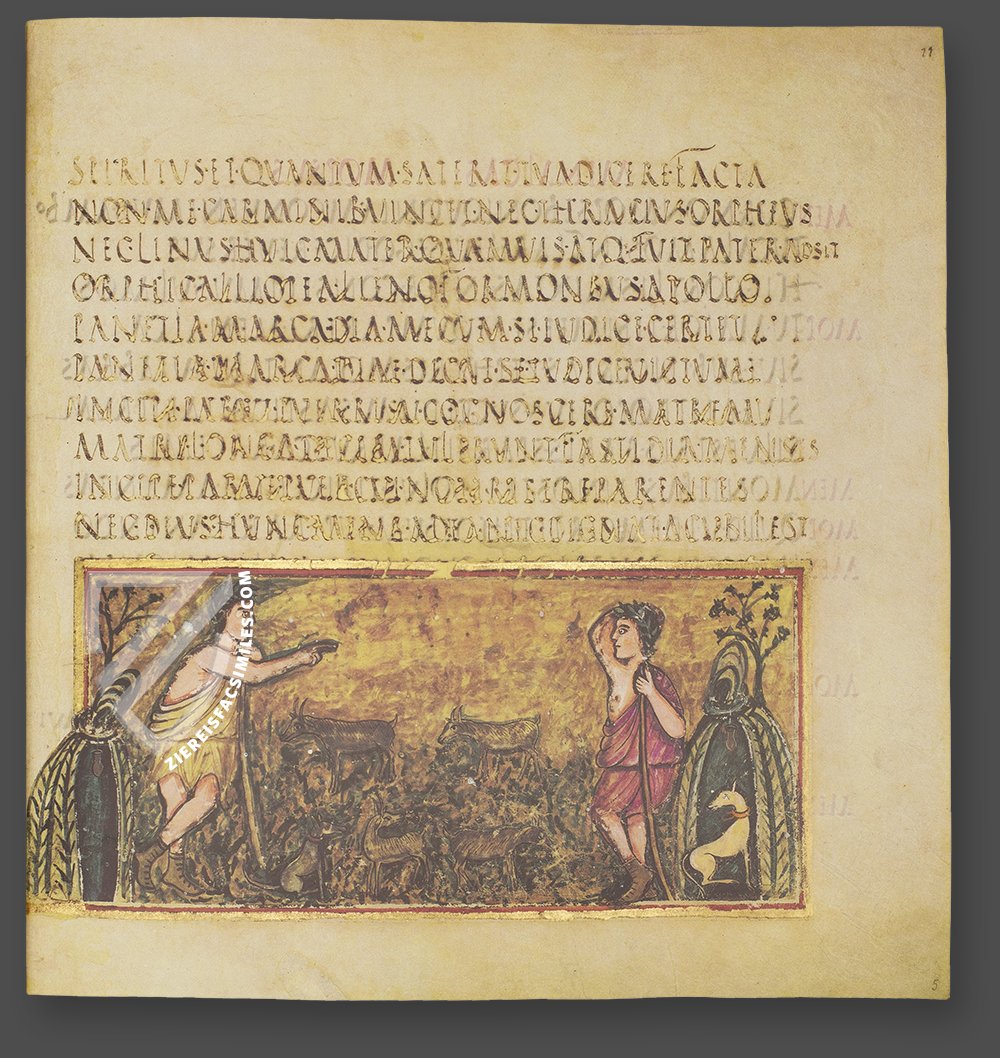 11
SPIRITUS·ET·QUANTUM·SATERIT·TUA·DICERE·FACTA
NON·ME·CARMINIB·VINCET·NEC·THRACIUS·ORPHEUS
NEC LINUS·HUIC·MATER·QUAMVIS·ATQ·HUIC·PATER·ADSIT
ORPHI·CALLIOPEA·LINO·FORMONSUS·APOLLO·
PAN ETIAM·ARCADIA·MECUM·SI·IUDICE·CERTET
PAN ETIAM·ARCADIAE·DICAT·SE·IUDICE·VICTUM
INCIPE·PARVE·PUER·RISU·COGNOSCERE·MATREM
MATRI·LONGA·TULERUNT·FASTIDIA·MENSES
INCIPE·PARVE·PUER·NON·RISERE·PARENTES
NEC·DEUS·HUNC·MENSA·DEA·NEC·DIGNATA·CUBILEST
ZIEREISFACSIMILES.COM
5